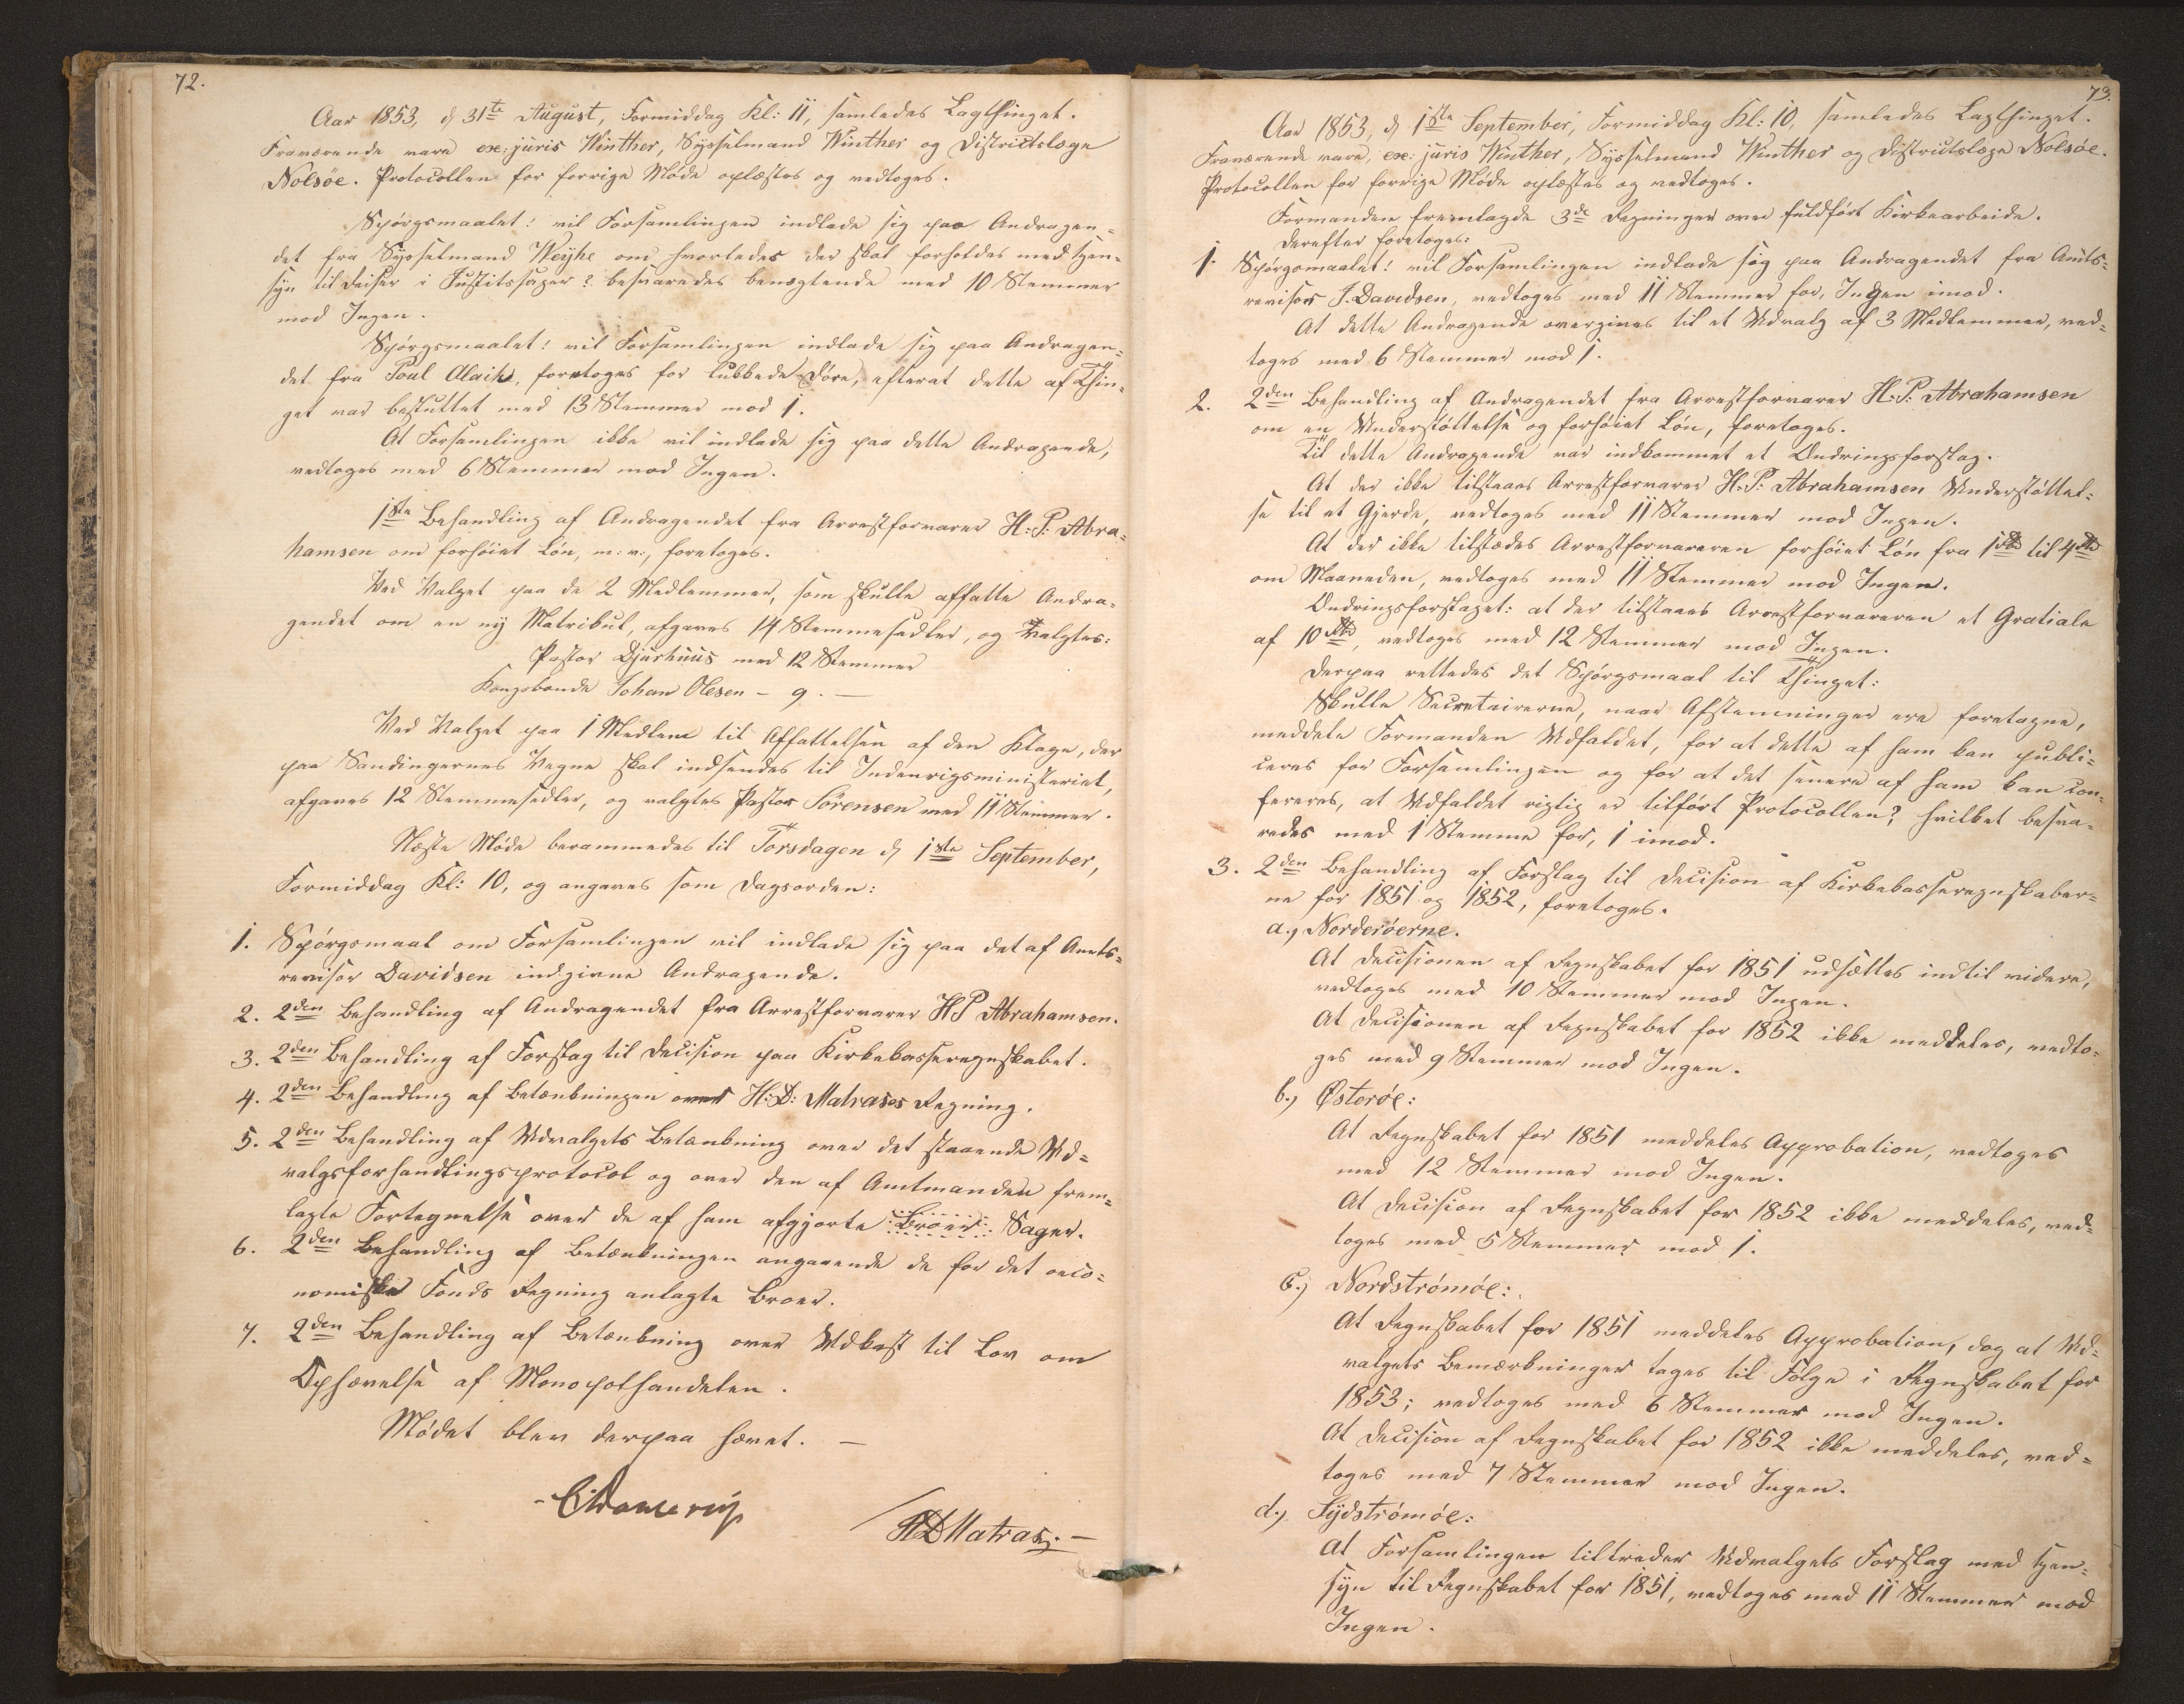 72.
Aar 1853, d 31te August, Formiddag Kl: 11, samledes Lagthinget.
Fraværende vare exc: juris Winther, Sysselmand Winther og Districtslæge
Nolsöe. Protocollen for forrige Møde oplæstes og vedtoges.
Spörgsmaalet: vil Forsamlingen indlade sig paa Andragen=
det fra Sysselmand Weyhe om hvorledes der skal forholdes med Hen=
syn til Reiser i Justitssager? besvaredes benægtende med 10 Stemmer
mod Ingen.
Spörgsmaalet: vil Forsamlingen indlade sig paa Andragen=
det fra Poul foretoges for lukkede Döre, efterat dette af Thin=
get var besluttet med 13 Stemmer mod 1.
At Forsamlingen ikke vil indlade sig paa dette Andragende,
vedtoges med 6 Stemmer mod Ingen.
1ste Behandling af Andragendet fra Arrestforvarer H. P. Abra=
hamsen om forhöiet Lön, m: v:, foretoges.
Ved Valget paa de 2 Medlemmer, som skulle affatte Andra=
gendet om en ny Matrikul, afgaves 14 Stemmesedler, og Valgtes:
Pastor Djurhuus med 12 Stemmer
Kongsbonde Johan Olesen – 9. —
Ved Valget paa 1 Medlem til Affattelsen af den Klage, der
paa Sandingernes Vegne skal indsendes til Indenrigsministeriet,
afgaves 12 Stemmesedler, og valgtes Pastor Sörensen med 11 Stemmer.
Næste Møde berammedes til Torsdagen d 1ste September,
Formiddag Kl: 10, og angaves som Dagsorden:
1. Spörgsmaal om Forsamlingen vil indlade sig paa det af Amts=
revisor Davidsen indgivne Andragende.
2. 2den Behandling af Andragendet fra Arrestforvarer HP Abrahamsen.
3. 2den Behandling af Forslag til Decision paa Kirkekasseregnskabet.
4. 2den Behandling af Betænkningen over H: D: Matrases Regning.
5. 2den Behandling af Udvalgets Betænkning over det staaende Ud=
valgsforhandlingsprotocol og over den af Amtmanden frem=
lagte Fortegnelse over de af ham afgjorte Broer Sager.
6. 2den Behandling af Betænkningen angaaende de for det oeco=
nomiske Fonds Regning anlagte Broer.
7. 2den Behandling af Betænkning over Udkast til Lov om
Ophævelse af Monopolhandelen.
Mødet blev derpaa hævet. —
HDMatras. —
73.
Aar 1853, d 1ste September, Formiddag Kl: 10, samledes Lagthinget.
Fraværende vare, exc: juris Winther, Sysselmand Winther og Districtslæge Nolsöe.
Protocollen for forrige Møde oplæstes og vedtoges.
Formanden fremlagde 3de Regninger over fuldfört Kirkearbeide.
Derefter foretoges:
1. Spörgsmaalet: vil Forsamlingen indlade sig paa Andragendet fra Amts=
revisor J. Davidsen, vedtoges med 11 Stemmer for, Ingen imod.
At dette Andragende overgives til et Udvalg af 3 Medlemmer, ved=
toges med 6 Stemmer mod 1.
2. 2den Behandling af Andragendet fra Arrestforvarer H: P: Abrahamsen
om en Understöttelse og forhöiet Lön, foretoges.
Til dette Andragende var indkommet et Ændringsforslag.
At der ikke tilstaaes Arrestforvarer H: P: Abrahamsen Understöttel=
se til et Gjerde, vedtoges med 11 Stemmer mod Ingen.
At der ikke tilstædes Arrestforvareren forhöiet Lön fra 1 Rd til 4 Rd
om Maaneden, vedtoges med 11 Stemmer mod Ingen.
Ændringsforslaget: at der tilstaaes Arrestforvareren et Gratiale
af 10 Rd, vedtoges med 12 Stemmer mod Ingen.
Derpaa rettedes det Spörgsmaal til Thinget:
Skulle Secretairerne, naar Afstemninger ere foretagne,
meddele Formanden Udfaldet, for at dette af ham kan publi=
ceres for Forsamlingen og for at det senere af ham kan con=
fereres, at Udfaldet rigtig er tilfört Protocollen? hvilket besva=
redes med 1 Stemme for, 1 imod.
3. 2den Behandling af Forslag til Decision af Kirkekasseregnskaber=
ne for 1851 og 1852, foretoges.
a.) Norderöerne.
At Decisionen af Regnskabet for 1851 udsættes indtil videre,
vedtoges med 10 Stemmer mod Ingen.
At Decisionen af Regnskabet for 1852 ikke meddeles, vedto=
ges med 9 Stemmer mod Ingen.
b.) Østeröe:
At Regnskabet for 1851 meddeles Approbation, vedtoges
med 12 Stemmer mod Ingen.
At Decision af Regnskabet for 1852 ikke meddeles, ved=
toges med 5 Stemmer mod 1.
c.) Nordströmöe:
At Regnskabet for 1851 meddeles Approbation, dog at Ud=
valgets Bemærkninger tages til Fölge i Regnskabet for
1853; vedtoges med 6 Stemmer mod Ingen.
At Decision af Regnskabet for 1852 ikke meddeles, ved=
toges med 7 Stemmer mod Ingen.
d.) Sydströmöe:
At Forsamlingen tiltræder Udvalgets Forslag med Hen=
syn til Regnskabet for 1851, vedtoges med 11 Stemmer mod
Ingen.